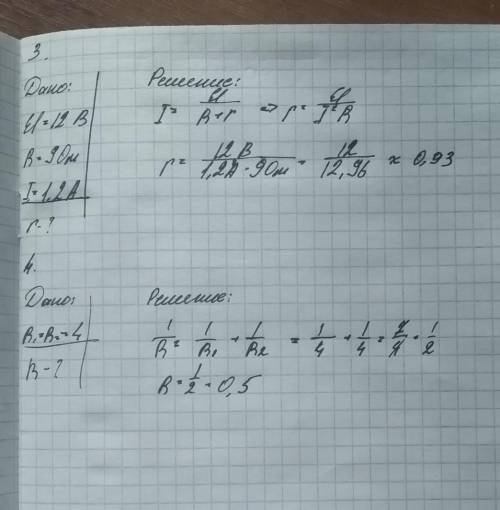 3.
Дано:
U=12 В
R=9 Ом
I=1,2 А
r-?
Решение:
I= U/(R+r) ⇒ r= U/(I²R)
r= 12 В/(1,2А·9Ом) = 12/12,96 ≈ 0,93
4.
Дано:
R₁=R₂=4
R-?
Решение:
1/R = 1/R₁ + 1/R₂ = 1/4 + 1/4 = 2/4 = 1/2
R= 1/2 = 0,5